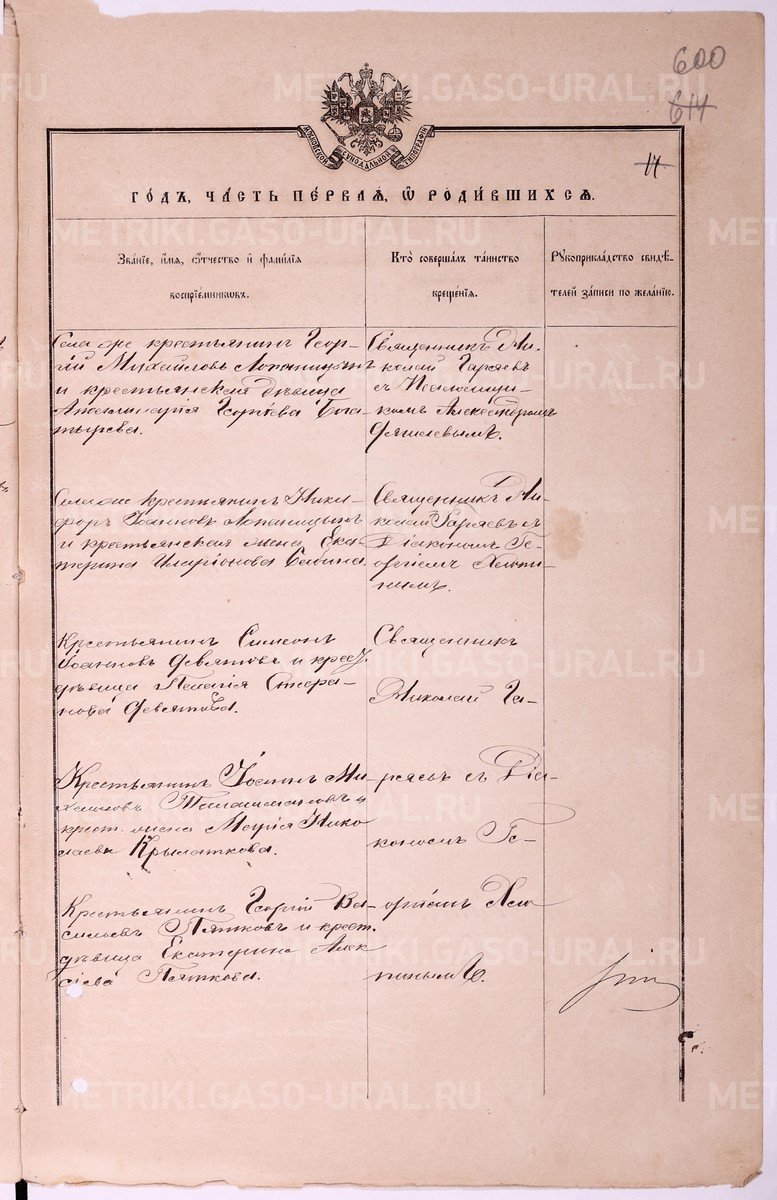 600
614
МОСКОВСКОЙ СѴНОДАЛЬНОЙ ТИПОГРАФІИ
11
ГО́ДЪ, ЧА́СТЬ ПЕ́РВАѦ, Ѡ҆ РОДИ́ВШИХСѦ.
Зва́нїе, и҆́мѧ, ѻ҆́тчество и҆ фами́лїѧ
воспрїе́мниковъ.
Кто̀ соверша́лъ та́инство
креще́нїѧ.
Рꙋкоприкла́дство свидѣ́-
телей за́писи по жела́нїю.
Села же крестьянинъ Геор-
гій Михайловъ Лопаницынъ
и крестьянская дѣвица
Георгіева Бога-
тырева.
Священникъ Ни-
колай Гаряевъ
съ Псаломщи-
комъ Александромъ
Села же крестьянинъ Ники-
форъ Іоанновъ Лопаницынъ
и крестьянская жена Ека-
терина Иларіонова Бабина
Священникъ Ни-
колай Гаряевъ съ
Діакономъ Ге-
оргіемъ Хлопи-
нымъ.
Крестьянинъ Симеонъ
Іоанновъ Девятовъ и крес.
дѣвица Пелагія Стефа-
нова Девятова.
Священникъ
Николай Га-
Крестьянинъ Іоаннъ Ми-
хаиловъ и
крест. жена Марія Нико
лаева Крылаткова.
ряевъ съ Діа-
кономъ Ге-
Крестьянинъ Георгій Ва-
сильевъ Пятковъ и крест.
дѣвица Екатерина Алек
сіева Пяткова.
оргіемъ Хло
пинымъ.
METRIKI.GASO-URAL.RU